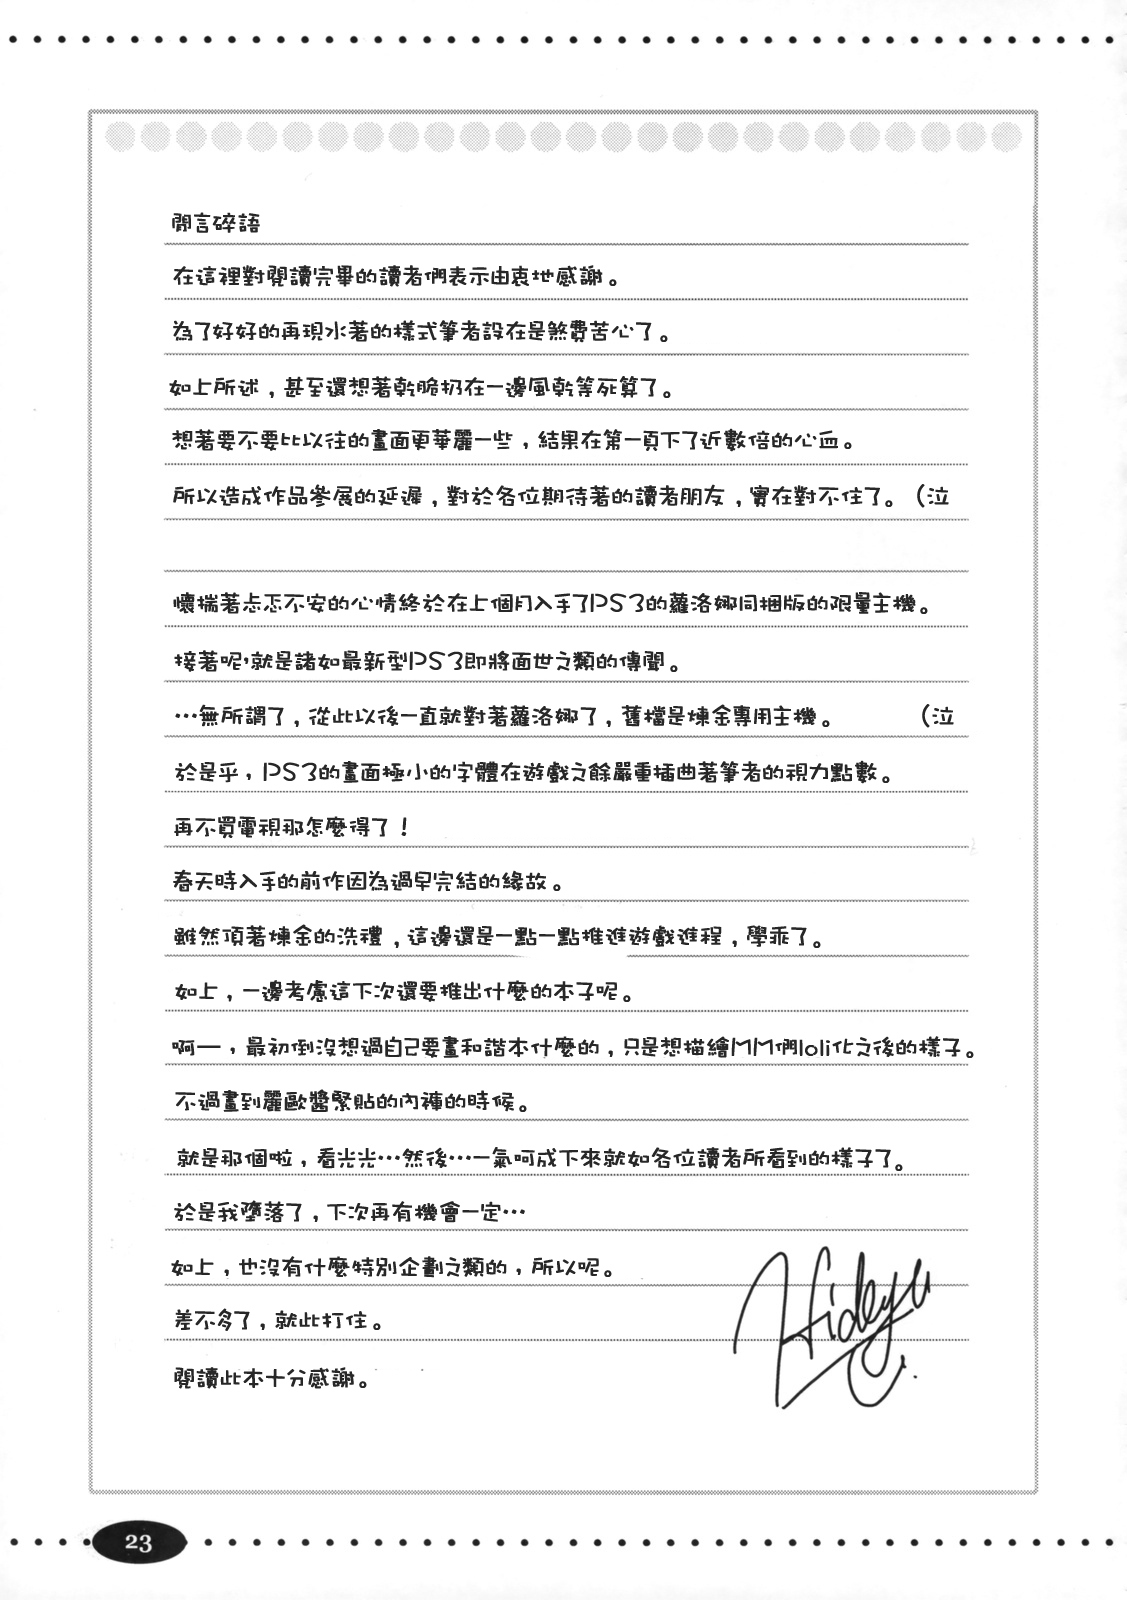 閒言碎語
在這裡對閱讀完畢的讀者們表示由衷地感謝。
為了好好的再現水著的樣式筆者設在是煞費苦心了。
如上所述，甚至還想著乾脆扔在一邊風乾等死算了。
想著要不要比以往的畫面更華麗一些，結果在第一頁下了近數倍的心血。
所以造成作品參展的延遲，對於各位期待著的讀者朋友，實在對不住了。（泣
懷揣著忐忑不安的心情終於在上個月入手了PS3的蘿洛娜同捆版的限量主機。
接著呢，就是諸如最新型PS3即將面世之類的傳聞。
…無所謂了，從此以後一直就對著蘿洛娜了，舊檔是煉金專用主機。　　　（泣
於是乎，PS3的畫面極小的字體在遊戲之餘嚴重插曲著筆者的視力點數。
再不買電視那怎麼得了！
春天時入手的前作因為過早完結的緣故。
雖然頂著煉金的洗禮，這邊還是一點一點推進遊戲進程，學乖了。
如上，一邊考慮這下次還要推出什麼的本子呢。
啊—，最初倒沒想過自己要畫和諧本什麼的，只是想描繪MM們loli化之後的樣子。
不過畫到麗歐醬緊貼的內褲的時候。
就是那個啦，看光光…然後…一氣呵成下來就如各位讀者所看到的樣子了。
於是我墮落了，下次再有機會一定…
如上，也沒有什麼特別企劃之類的，所以呢。
差不多了，就此打住。
閱讀此本十分感謝。
Hideyu
23